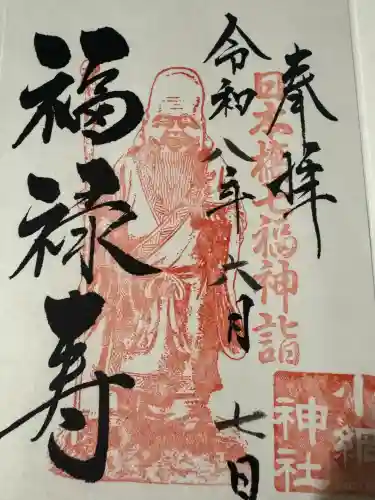 奉拝
日本橋七福神詣
小網
神社
令和八年六月
七日
福禄寿